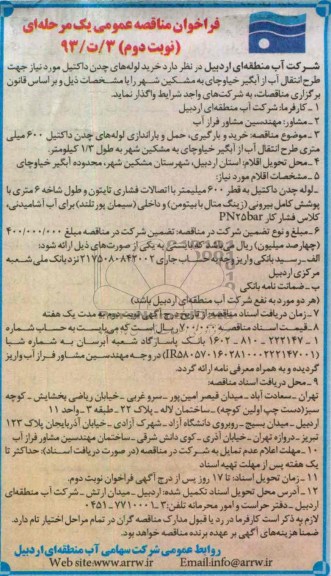 فراخوان مناقصه عمومی یک مرحله‌ای
(نوبت دوم) ۳/ت/۹۳
شرکت آب منطقه‌ای اردبیل در نظر دارد خرید لوله‌های چدن داکتیل مورد نیاز جهت
طرح انتقال آب از آبگیر خیاوچای به مشکین شهر را با مشخصات ذیل و بر اساس قانون
برگزاری مناقصات، به شرکت‌های واجد شرایط واگذار نماید.
۱ - کارفرما: شرکت آب منطقه‌ای اردبیل
۲ - مشاور: مهندسین مشاور فراز آب
۳ - موضوع مناقصه: خرید و بارگیری، حمل و باراندازی لوله‌های چدن داکتیل ۶۰۰ میلی
متری طرح انتقال آب از آبگیر خیاوچای به مشکین شهر به طول ۱/۳ کیلومتر.
۴ - محل تحویل اقلام: استان اردبیل، شهرستان مشکین شهر، محدوده آبگیر خیاوچای
۵ - مشخصات اقلام مورد نیاز:
- لوله چدن داکتیل به قطر ۶۰۰ میلیمتر با اتصالات فشاری تایتون و طول شاخه ۶ متری با
پوشش کامل بیرونی (زینگ متال با بیتومن) و داخلی (سیمان پور تلند) برای آب آشامیدنی،
کلاس فشار کار PN۲۵bar
۶ - مبلغ و نوع تضمین شرکت در مناقصه: تضمین شرکت در مناقصه مبلغ ۴۰۰/۰۰۰/۰۰۰
(چهارصد میلیون) ریال می‌باشد که بایستی به یکی از صورت‌های ذیل ارائه شود:
الف - رسید بانکی واریز وجه به حساب جاری ۲۱۷۵۰۸۰۸۴۲۰۰۲ نزد بانک ملی شعبه
مرکزی اردبیل
ب - ضمانت نامه بانکی
(هر دو مورد به نفع شرکت آب منطقه‌ای اردبیل باشد)
۷ - زمان دریافت اسناد مناقصه: از تاریخ درج آگهی نوبت دوم به مدت یک هفته
۸ - قیمت اسناد مناقصه ۷۰۰/۰۰۰ ریال است که می‌بایست به حساب شماره
۱ - ۲۲۲۱۴۷ - ۸۱۰ - ۱۶۰۲ بانک پاسارگاد شعبه آبرسان به شماره شبا
(IR۵۸۰۵۷۰۱۶۰۲۸۱۰۰۰۲۲۲۱۴۷۰۰۱) در وجه مهندسین مشاور فراز آب واریز
گردیده و به همراه معرفی نامه ارائه گردد.
۹ - محل دریافت اسناد مناقصه:
تهران - سعادت آباد - میدان قیصر امین پور - سرو غربی - خیابان ریاضی بخشایش - کوچه
سبز (دست چپ اولین کوچه) - ساختمان لاله - پلاک ۲۲ - طبقه ۳ - واحد ۱۱
اردبیل - میدان بسیج - روبروی دانشگاه آزاد - شهرک آزادی - خیابان آذربایجان پلاک ۱۲۳
تبریز - دروازه تهران - خیابان آذری - کوی دانش شرقی - ساختمان مهندسین مشاور فراز آب
۱۰ - مهلت اعلام عدم تمایل به شرکت در مناقصه (در صورت دریافت اسناد): حداکثر تا
یک هفته پس از مهلت تهیه اسناد
۱۱ - زمان تحویل اسناد: تا ۱۷ روز پس از درج آگهی فراخوان نوبت دوم.
۱۲ - آدرس محل تحویل اسناد تکمیل شده: اردبیل - میدان ارتش - شرکت آب منطقه‌ای
اردبیل - دفتر حراست و امور محرمانه تلفن: ۳ - ۷۷۱۰۰۱ - ۰۴۵۱
لازم به ذکر است کارفرما در رد یا قبول مدارک مناقصه گران در تمام مراحل اختیار تام دارد.
ضمنا هزینه‌های آگهی بر عهده برنده مناقصه خواهد بود.
روابط عمومی شرکت سهامی آب منطقه‌ای اردبیل
Web site:www.arrw.ir Email:info@arrw.ir